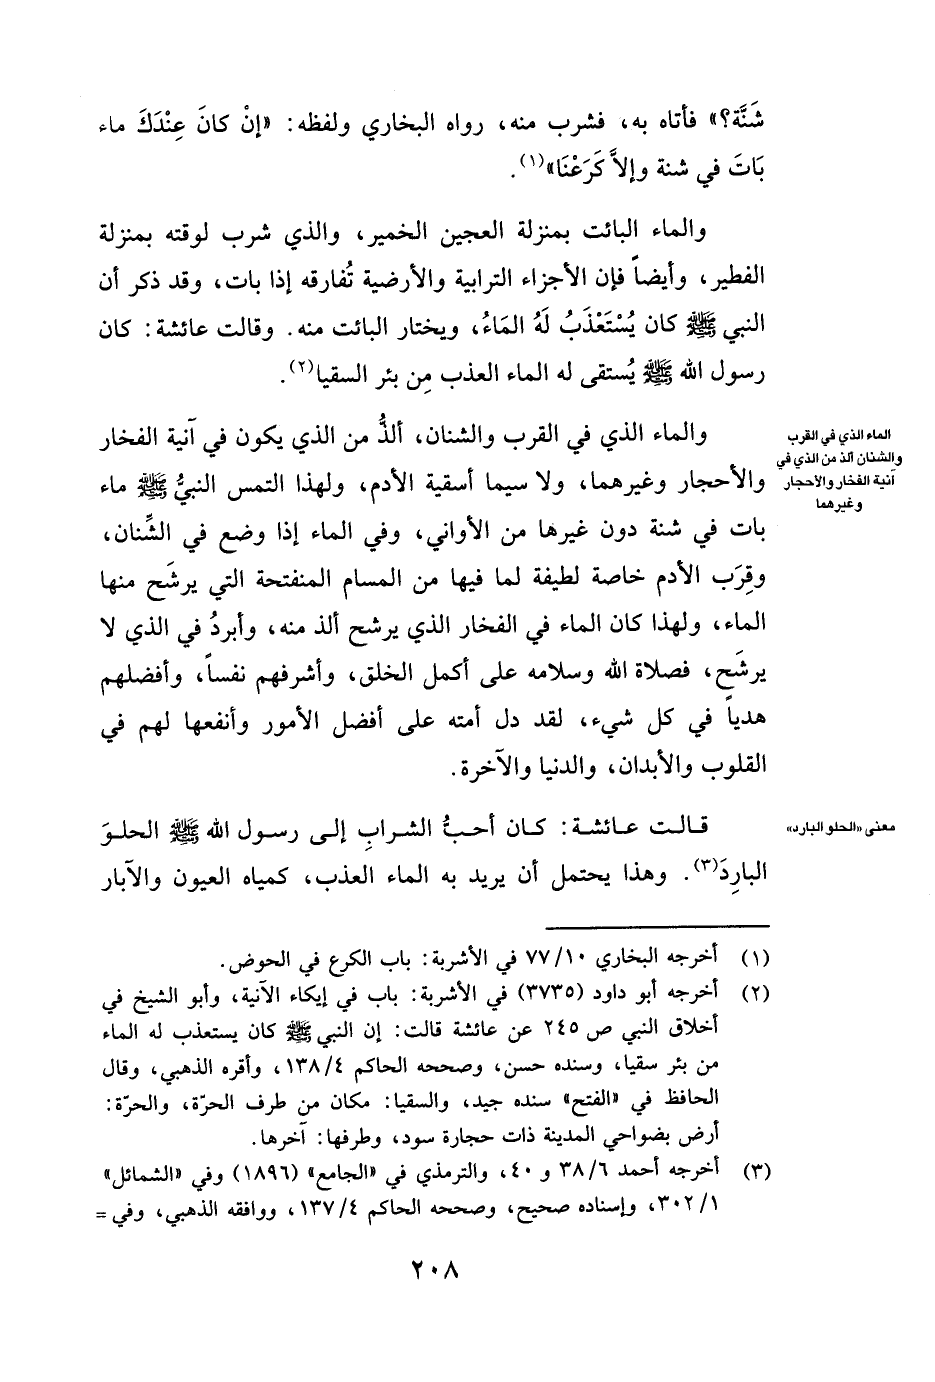 شَنَّة؟» فأتاه به، فشرب منه، رواه البخاري ولفظه: «إنْ كانَ عِنْدَكَ ماء
بَاتَ في شنة وإلاَّ كَرَعْنَا»(١).
والماء البائت بمنزلة العجين الخمير، والذي شرب لوقته بمنزلة
الفطير، وأيضاً فإن الأجزاء الترابية والأرضية تُفارقه إذا بات، وقد ذكر أن
النبي ﷺ كان يُسْتَعْذَبُ لَهُ المَاءُ، ويختار البائت منه. وقالت عائشة: كان
رسول الله ﷺ يُستقى له الماء العذب مِن بئر السقيا(٢).
والماء الذي في القرب والشنان، ألذُّ من الذي يكون في آنية الفخار
والأحجار وغيرهما، ولا سيما أسقية الأدم، ولهذا التمس النبيُّ ﷺ ماء
بات في شنة دون غيرها من الأواني، وفي الماء إذا وضع في الشِّنان،
وقِرَب الأدم خاصة لطيفة لما فيها من المسام المنفتحة التي يرشَح منها
الماء، ولهذا كان الماء في الفخار الذي يرشح ألذ منه، وأبردُ في الذي لا
يرشَح، فصلاة الله وسلامه على أكمل الخلق، وأشرفهم نفساً، وأفضلهم
هدياً في كل شيء، لقد دل أمته على أفضل الأمور وأنفعها لهم في
القلوب والأبدان، والدنيا والآخرة.
الماء الذي في القرب
والشنان ألذ من الذي في
آنية الفخار والأحجار
وغيرهما
قالت عائشة: كان أحبُّ الشرابِ إلى رسول الله ﷺ الحلوَ
البارِدَ(٣). وهذا يحتمل أن يريد به الماء العذب، كمياه العيون والآبار
معنى «الحلو البارد»
(١) أخرجه البخاري ٧٧/١٠ في الأشربة: باب الكرع في الحوض.
(٢) أخرجه أبو داود (٣٧٣٥) في الأشربة: باب في إيكاء الآنية، وأبو الشيخ في
أخلاق النبي ص ٢٤٥ عن عائشة قالت: إن النبي ﷺ كان يستعذب له الماء
من بئر سقيا، وسنده حسن، وصححه الحاكم ١٣٨/٤، وأقره الذهبي، وقال
الحافظ في «الفتح» سنده جيد، والسقيا: مكان من طرف الحرّة، والحرّة:
أرض بضواحي المدينة ذات حجارة سود، وطرفها: آخرها.
(٣) أخرجه أحمد ٣٨/٦ و ٤٠، والترمذي في «الجامع» (١٨٩٦) وفي «الشمائل»
٣٠٢/١، وإسناده صحيح، وصححه الحاكم ١٣٧/٤، ووافقه الذهبي، وفي =
٢٠٨